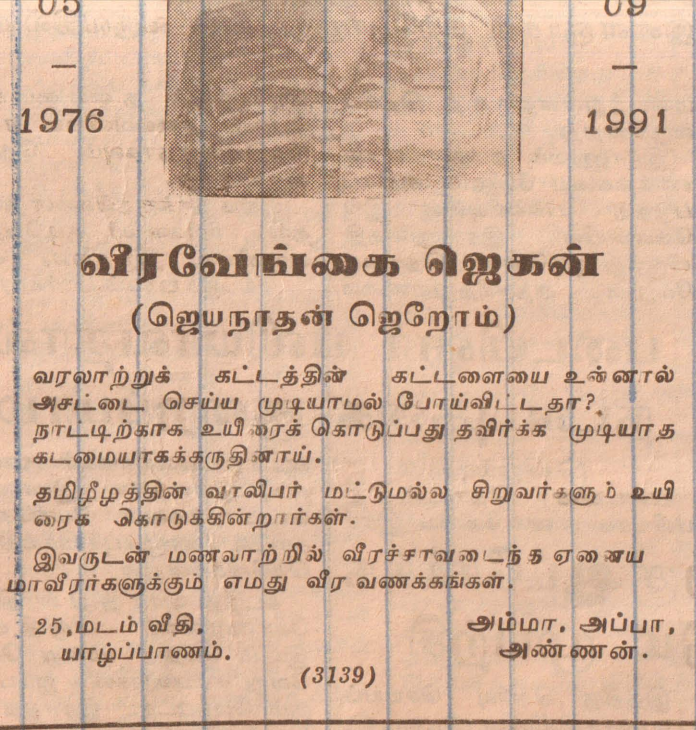 05 09
– –
1976 1991
வீரவேங்கை ஜெகன்
(ஜெயநாதன் ஜெறோம்)
வரலாற்றுக் கட்டத்தின் கட்டளையை உன்னால்
அசட்டை செய்ய முடியாமல் போய்விட்டதா?
நாட்டிற்காக உயிரைக் கொடுப்பது தவிர்க்க முடியாத
கடமையாகக்கருதினாய்.
தமிழீழத்தின் வாலிபர் மட்டுமல்ல சிறுவர்களும் உயி
ரைக கொடுக்கின்றார்கள்.
இவருடன் மணலாற்றில் வீரச்சாவடைந்த ஏனைய
மாவீரர்களுக்கும் எமது வீர வணக்கங்கள்.
25,மடம் வீதி, அம்மா, அப்பா,
யாழ்ப்பாணம். அண்ணன்.
(3139)